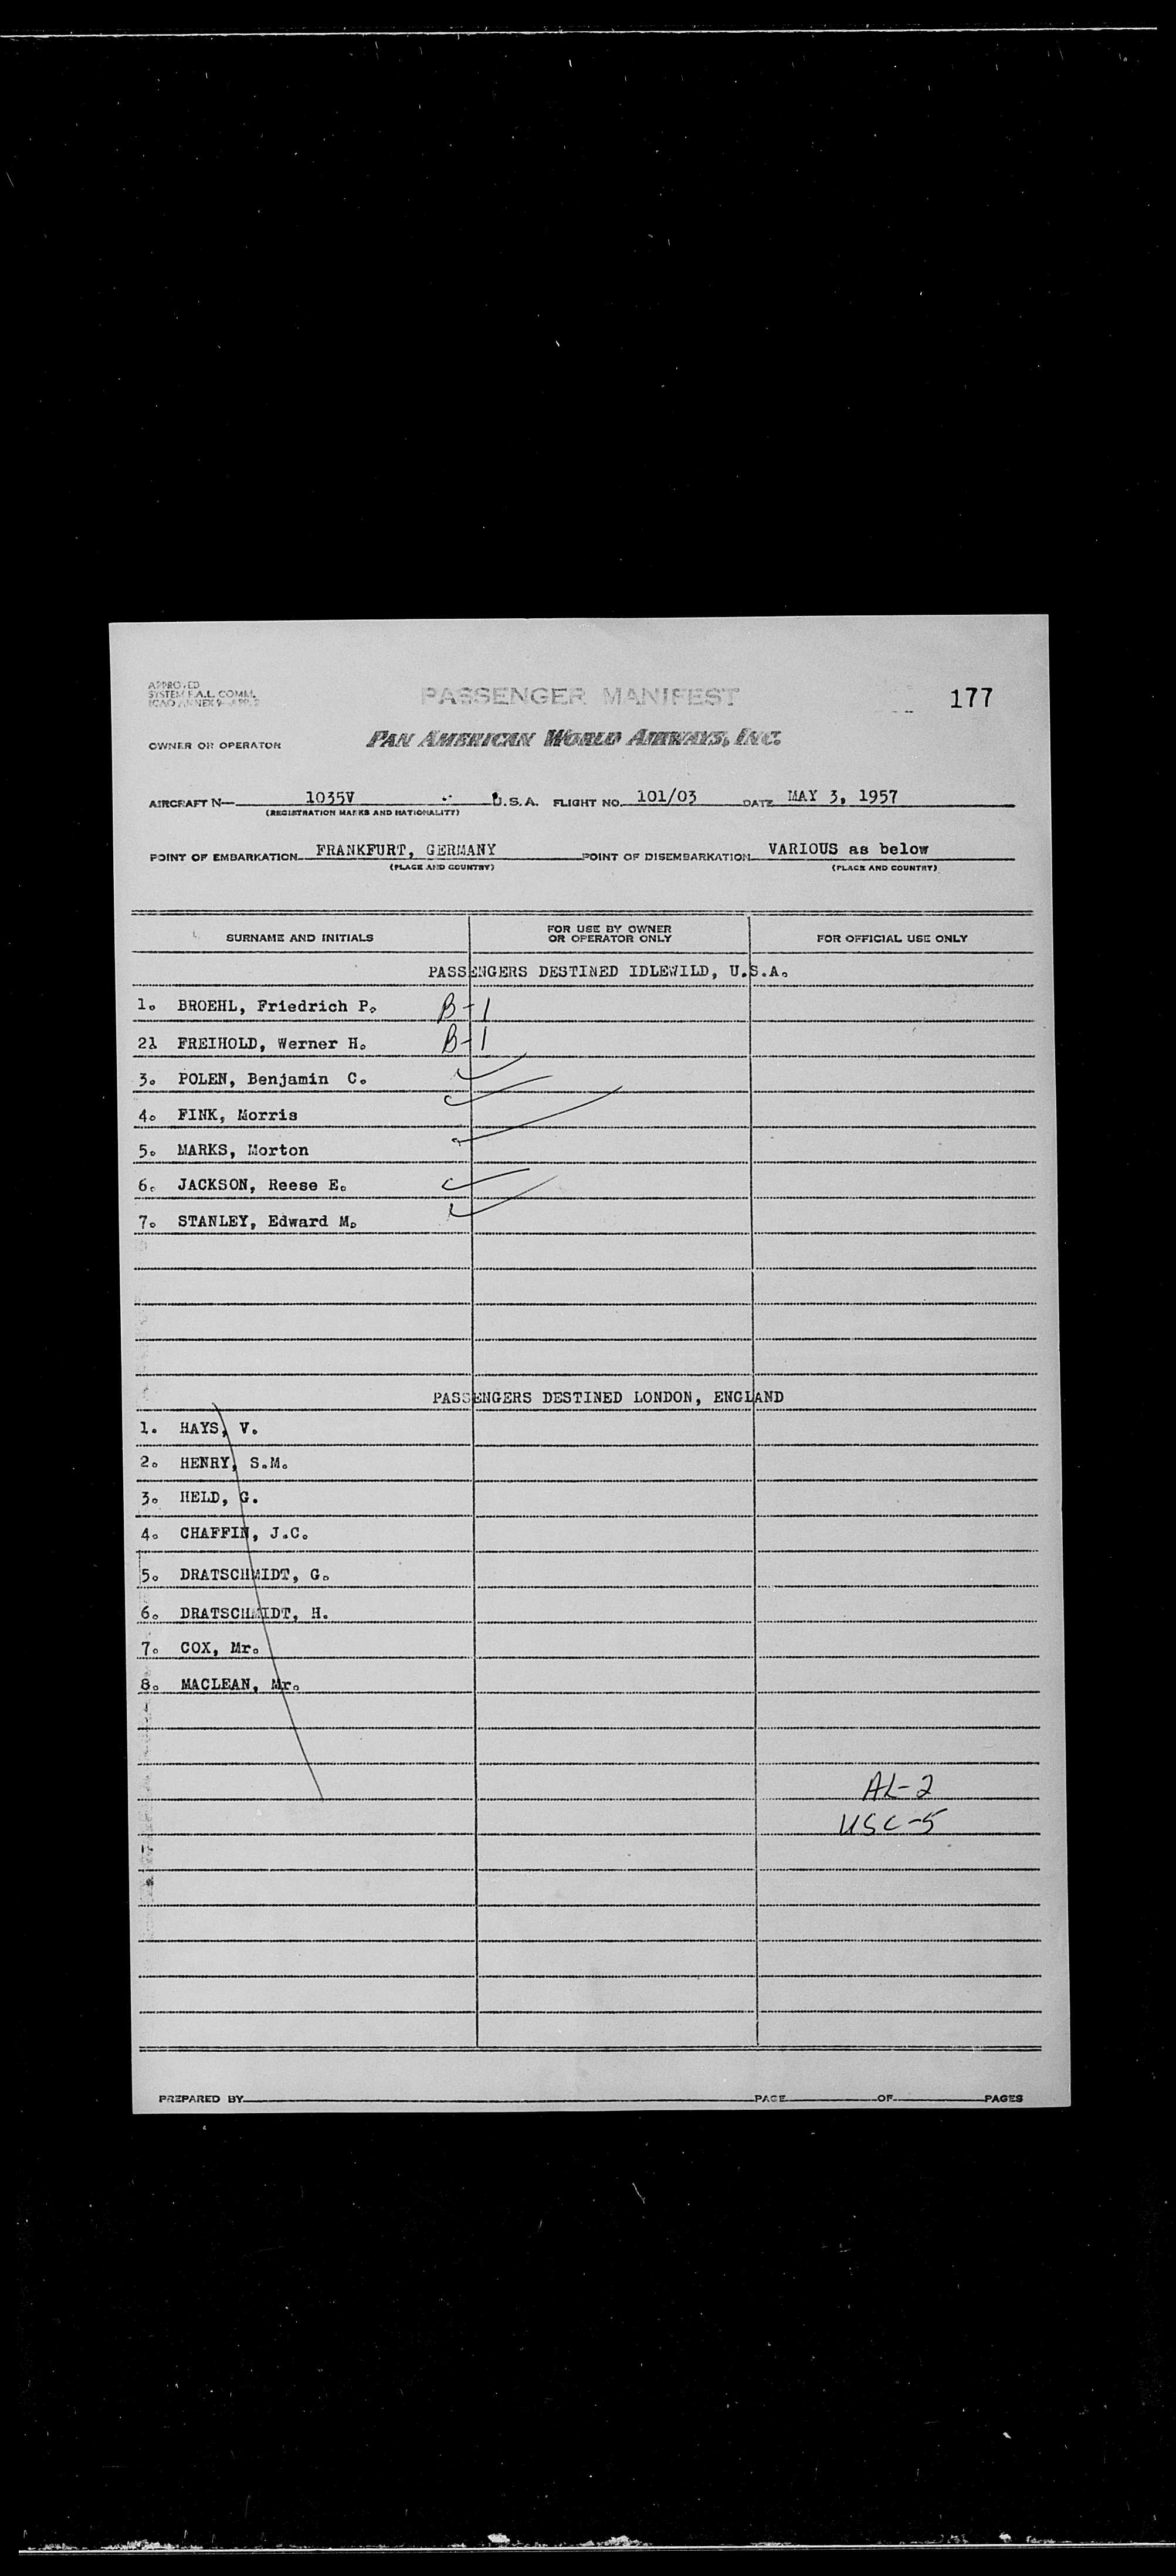 APPROVED
SYSTEM F.A.L. COMM.
ICAO ANNEX 9-APP. 2
PASSENGER MANIFEST
177
OWNER OR OPERATOR PAN AMERICAN WORLD AIRWAYS, INC.
AIRCRAFT N— 1035V U.S.A. FLIGHT NO. 101/03 DATE MAY 3, 1957
(REGISTRATION MARKS AND NATIONALITY)
POINT OF EMBARKATION FRANKFURT, GERMANY POINT OF DISEMBARKATION VARIOUS as below
(PLACE AND COUNTRY) (PLACE AND COUNTRY)
SURNAME AND INITIALS FOR USE BY OWNER OR OPERATOR ONLY FOR OFFICIAL USE ONLY
PASSENGERS DESTINED IDLEWILD, U.S.A.
1. BROEHL, Friedrich P. B-1
21 FREIHOLD, Werner H. B-1
3. POLEN, Benjamin C.
4. FINK, Morris
5. MARKS, Morton
6. JACKSON, Reese E.
7. STANLEY, Edward M.
PASSENGERS DESTINED LONDON, ENGLAND
1. HAYS, V.
2. HENRY, S.M.
3. HELD, G.
4. CHAFFIN, J.C.
5. DRATSCHMIDT, G.
6. DRATSCHMIDT, H.
7. COX, Mr.
8. MACLEAN, Mr.
AL-2
USC-5
PREPARED BY PAGE OF PAGES